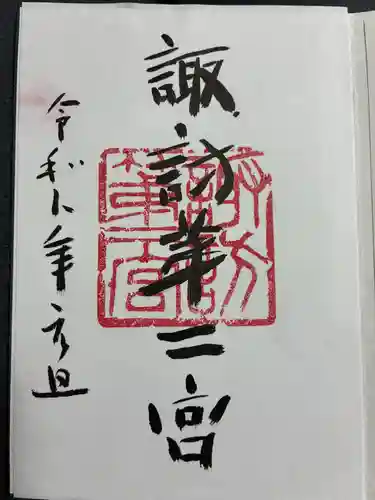 諏訪第二宮
令和八年元旦